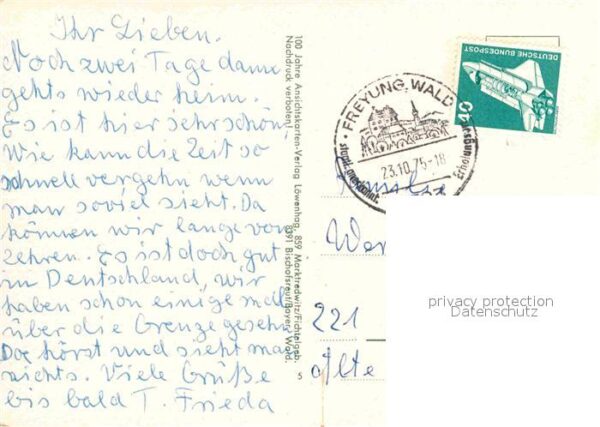 Ihr Lieben.
Noch zwei Tage dann
gehts wieder heim.
Es ist hier sehr schön,
Wie kann die Zeit so
schnell vergehn wenn
man soviel sieht. Da
können wir lange von
zehren. Es ist doch gut
in Deutschland, wir
haben schon einige mal
über die Grenze gesehn
Da hörst und sieht man
nichts. Viele Grüße
bis bald T. Frieda
100 Jahre Ansichtskarten-Verlag Löwenhag, 859 Marktredwitz/Fichtelgeb.
Nachdruck verboten! 8391 Bischofsreut/Bayer. Wald.
5
FREYUNG, WALD
23.10.75-18
staatl. anerkannt.
Erholungsort
DEUTSCHE BUNDESPOST
40
Familie
Wer
221
Alte
privacy protection
Datenschutz